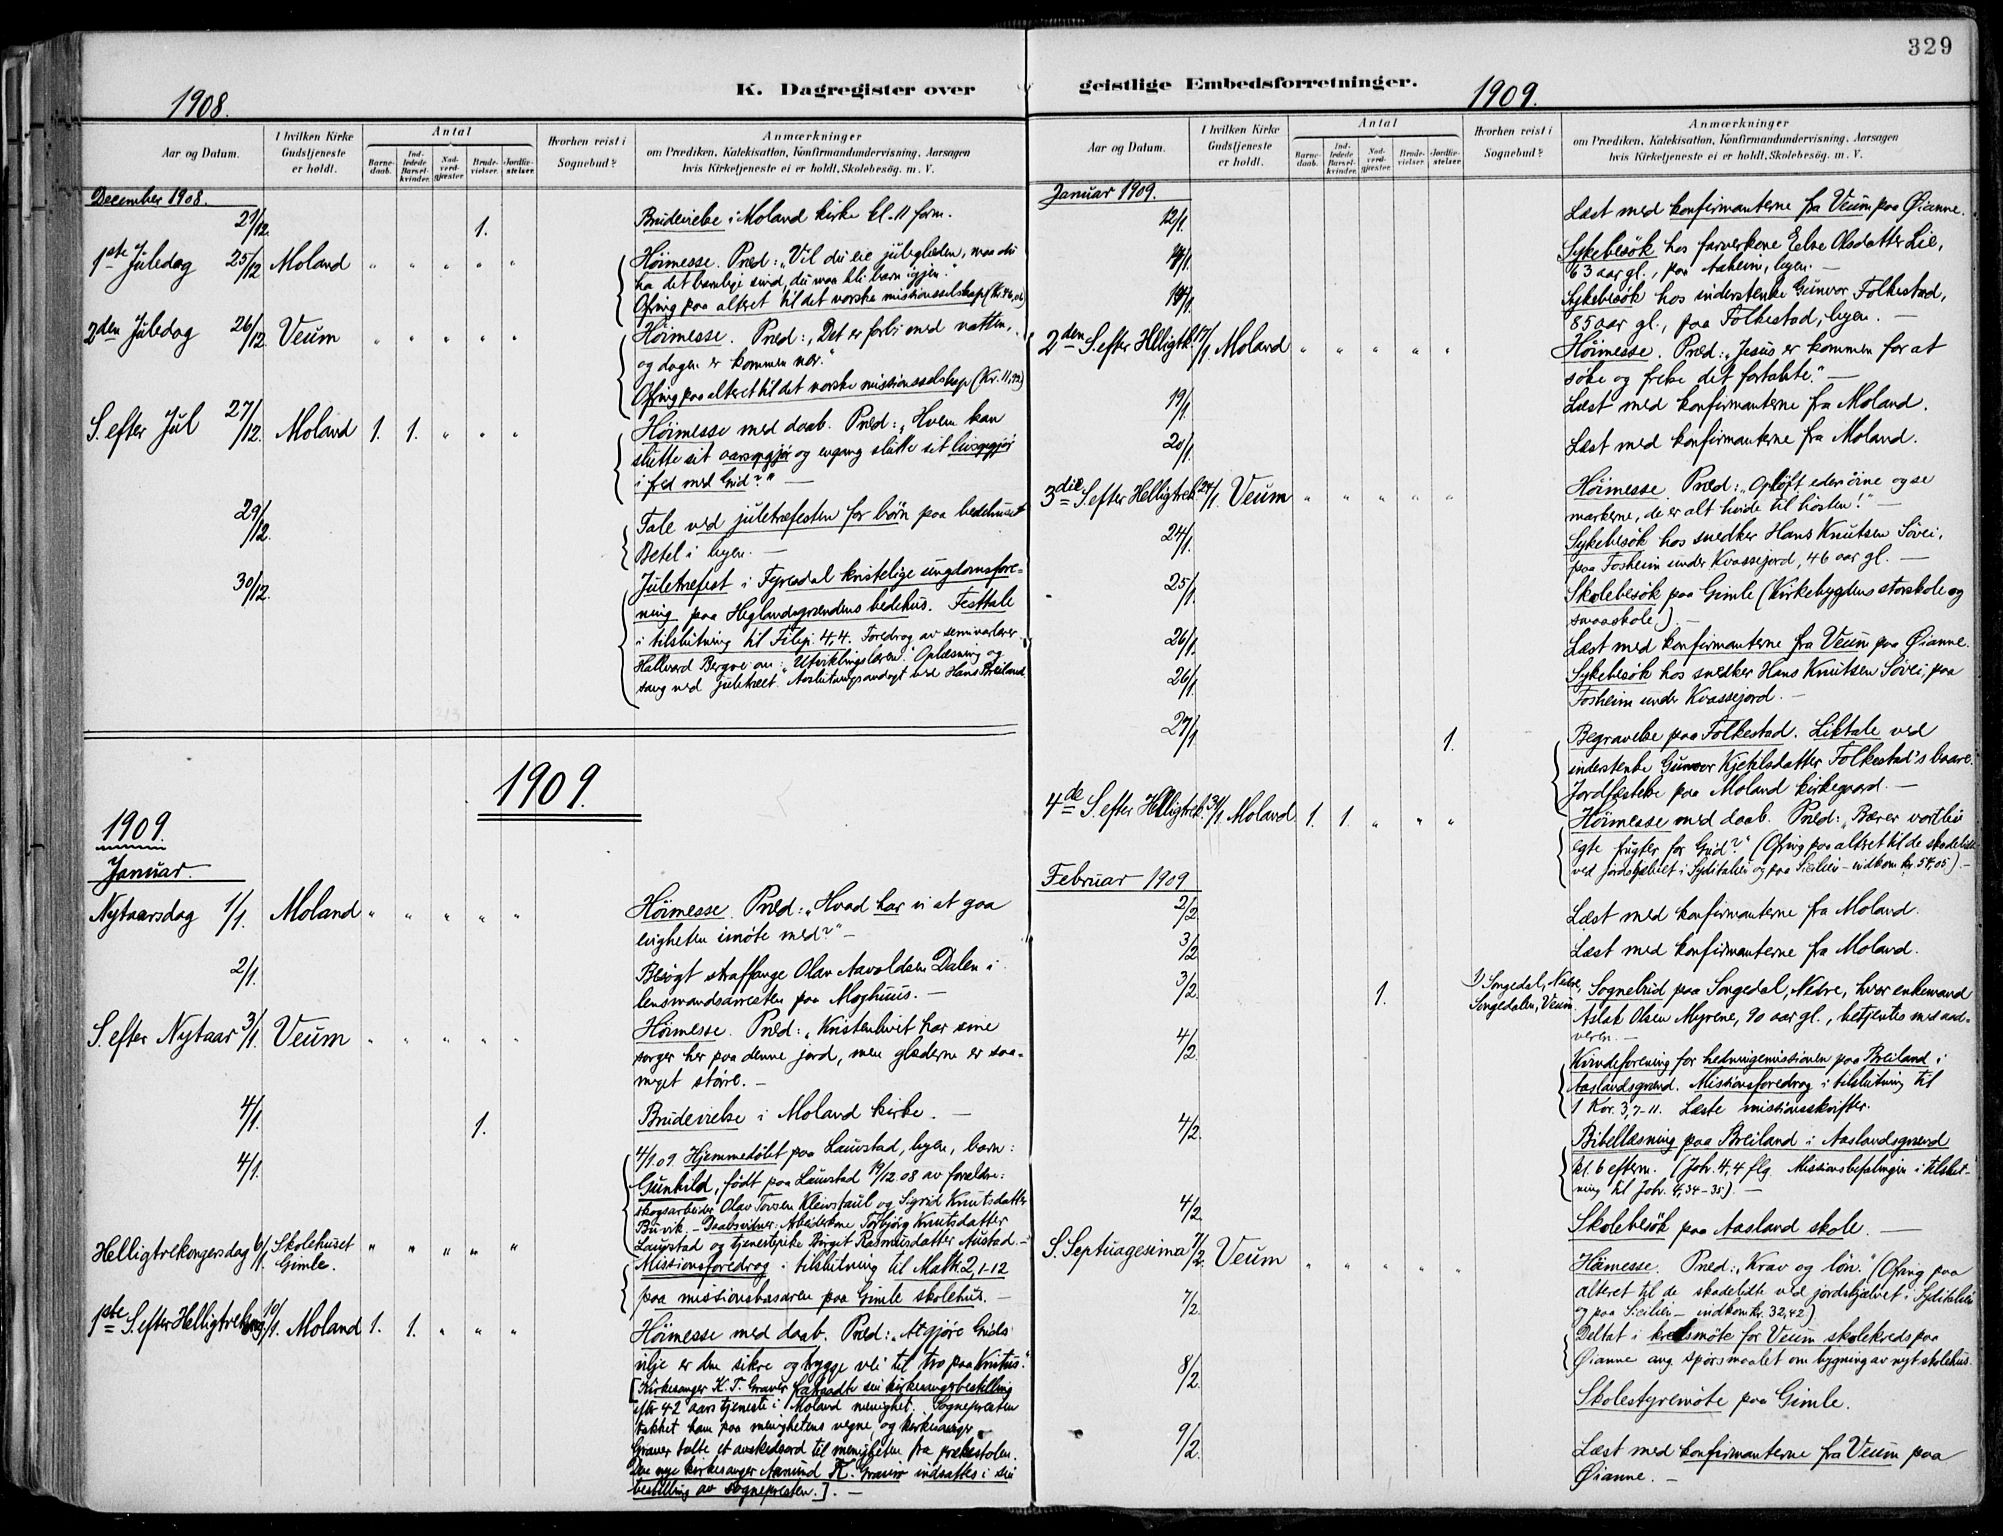 329
K. Dagregister over geistlige Embedsforretninger.
1908.
Aar og Datum.
I hvilken Kirke Gudstjeneste er holdt.
Antal
Barnedaab.
Indledede Barselkvinder.
Nadverdgjæster.
Brudevielser.
Jordfæstelser.
Hvorhen reist i Sognebud?
Anmærkninger
om Prædiken, Katekisation, Konfirmandundervisning, Aarsagen
hvis Kirketjeneste ei er holdt, Skolebesög, m. V.
December 1908.
21/12. 1. Brudevielse i Moland kirke kl. 11 form.
1ste Juledag 25/12 Moland " " " " " Höimesse. Præd: „Vil du eie juleglæden, maa du
ha det barnlige sind, du maa bli barn igjen."
Ofring paa altret til det norske missionsselskap
2den Juledag 26/12. Veum " " " " " Höimesse. Præd: „Det er forbi med natten,
og dagen er kommen nær."
Ofring paa altret til det norske missionsselskap (Kr. 11,42)
S. efter Jul 27/12. Moland 1. 1. " " " Höimesse med daab. Præd: „Hvem kan
slutte sit aarsopgjör og engang slutte sit livsopgjör
i fred med Gud?" —
29/12. Tale ved juletræfesten for börn paa bedehuset
Betel i byen. —
30/12. Juletræfest i Fyresdal kristelige ungdomsfore-
ning paa Heglandsgrændens bedehus. Festtale
i tilslutning til Filip. 4,4. Foredrag av seminarlærer
Hallvard Bergve om: „Utviklingslæren". Oplæsning og
sang ved juletræet. Avslutningsandagt ved Hans Breiland.
1909.
1909.
Januar.
Nytaarsdag 1/1. Moland " " " " " Höimesse. Præd: „Hvad har vi at gaa
evigheten imöte med?" —
2/1. Besögt straffange Olav Aavoldsen Dalen i
lensmandsarresten paa Moghuus. —
S. efter Nytaar 3/1. Veum " " " " " Höimesse. Præd: „Kristenlivet har sine
sorger her paa denne jord, men glæderne er saa-
meget större. —
4/1. 1. Brudevielse i Moland kirke. —
4/1. 4/1.09. Hjemmedöbt paa Laustad, byen, barn:
Gunhild, född paa Laustad 19/12.08 av forældre:
skogsarbeider Olav Torsen Kleivstaul og Sigrid Knutsdatter
Buvik. — Daabsvitner: Arbeiderkone Torbjörg Knutsdatter
Laustad og tjenestepike Birget Rasmusdatter Austad. —
Helligtrekongersdag 6/1. Skolehuset Gimle. " " " " " Missionsforedrag i tilslutning til Matth. 2, 1-12
paa missionsbasaren paa Gimle skolehus. —
1ste S. efter Helligtrekong. 10/1. Moland 1. 1. " " " Höimesse med daab. Præd: „At gjöre Guds
vilje er den sikre og trygge vei til tro paa Kristus."
[Kirkesanger K. T. Graver fratraadte sin kirkesangerbestilling
efter 42 aars tjeneste i Moland menighet. Sognepresten
takket ham paa menighetens vegne, og kirkesanger
Graver talte et avskedsord til menigheten fra prækestolen.
Den nye kirkesanger Aamund K. Graver indsattes i sin
bestilling av sognepresten.]. —
1909.
Aar og Datum.
I hvilken Kirke Gudstjeneste er holdt.
Antal
Barnedaab.
Indledede Barselkvinder.
Nadverdgjæster.
Brudevielser.
Jordfæstelser.
Hvorhen reist i Sognebud?
Anmærkninger
om Prædiken, Katekisation, Konfirmandundervisning, Aarsagen
hvis Kirketjeneste ei er holdt, Skolebesög, m. V.
Januar 1909.
12/1. Læst med konfirmanterne fra Veum paa Öianne.
14/1. Sykebesök hos farverkone Eelse Olsdatter Lie,
63 aar gl., paa Aaheim, byen. —
14/1. Sykebesök hos inderstenke Gunvor Folkestad,
85 aar gl., paa Folkestad, byen. —
2den S. efter Helligtk. 17/1 Moland " " " " " Höimesse. Præd: „Jesus er kommen for at
söke og frelse det fortabte." —
19/1. Læst med konfirmanterne fra Moland.
20/1. Læst med konfirmanterne fra Moland.
3die S. efter Helligtrek. 24/1 Veum " " " " " Höimesse. Præd: „Oplöft eders öine og se
markerne, de er alt hvide til hösten!" —
24/1. Sykebesök hos snedker Hans Knutsen Sövei,
paa Fosheim under Kvassejord, 46 aar gl. —
25/1. Skolebesök paa Gimle (Kirkebygdens storskole og
smaaskole). —
26/1. Læst med konfirmanterne fra Veum paa Öianne.
26/1. Sykebesök hos snedker Hans Knutsen Sövei, paa
Fosheim under Kvassejord. —
27/1. 1. Begravelse paa Folkestad. Liktale ved
inderstenke Gunvor Kjetilsdatter Folkestad's baare.
Jordfæstelse paa Moland kirkegaard. —
4de S. efter Helligtrek. 31/1 Moland 1. 1. " " " Höimesse med daab. Præd: „Bærer vort liv
egte frugter for Gud?" (Ofring paa altret til de skadelidte
ved jordskjælvet i Syditalien og paa Sicilien — indkom kr. 54,05). —
Februar 1909
2/2 Læst med konfirmanterne fra Moland.
3/2 Læst med konfirmanterne fra Moland.
3/2. 1. 1) Songedal, Nedre, Songedalen, Veum. Sognebud paa Songedal, Nedre, hvor enkemand
Aslak Olsen Myrene, 90 aar gl., betjentes med nad-
veren. —
4/2 Kvindeforening for hedningemissionen paa Breiland i
Aaslandsgrænd. Missionsforedrag i tilslutning til
1 Kor. 3, 7-11. Læste missionsskrifter.
4/2. Bibellæsning paa Breiland i Aaslandsgrænd
kl. 6 eftm. (Joh. 4,4 flg. Missionsbefalingen i tilslut-
ning til Joh. 4,34-35). —
4/2. Skolebesök paa Aasland skole. —
S. Septuagesima 7/2. Veum " " " " " Höimesse. Præd: „Krav og lön." (Ofring paa
alteret til de skadelidte ved jordskjælvet i Syditalien
og paa Sicilien — indkom kr. 32,42)
7/2. Deltat i kredsmöte for Veum skolekreds paa
Öianne ang. spörsmaalet om bygning av nyt skolehus.
8/2. Skolestyremöte paa Gimle.
9/2. Læst med konfirmanterne fra Veum paa
Öianne. —